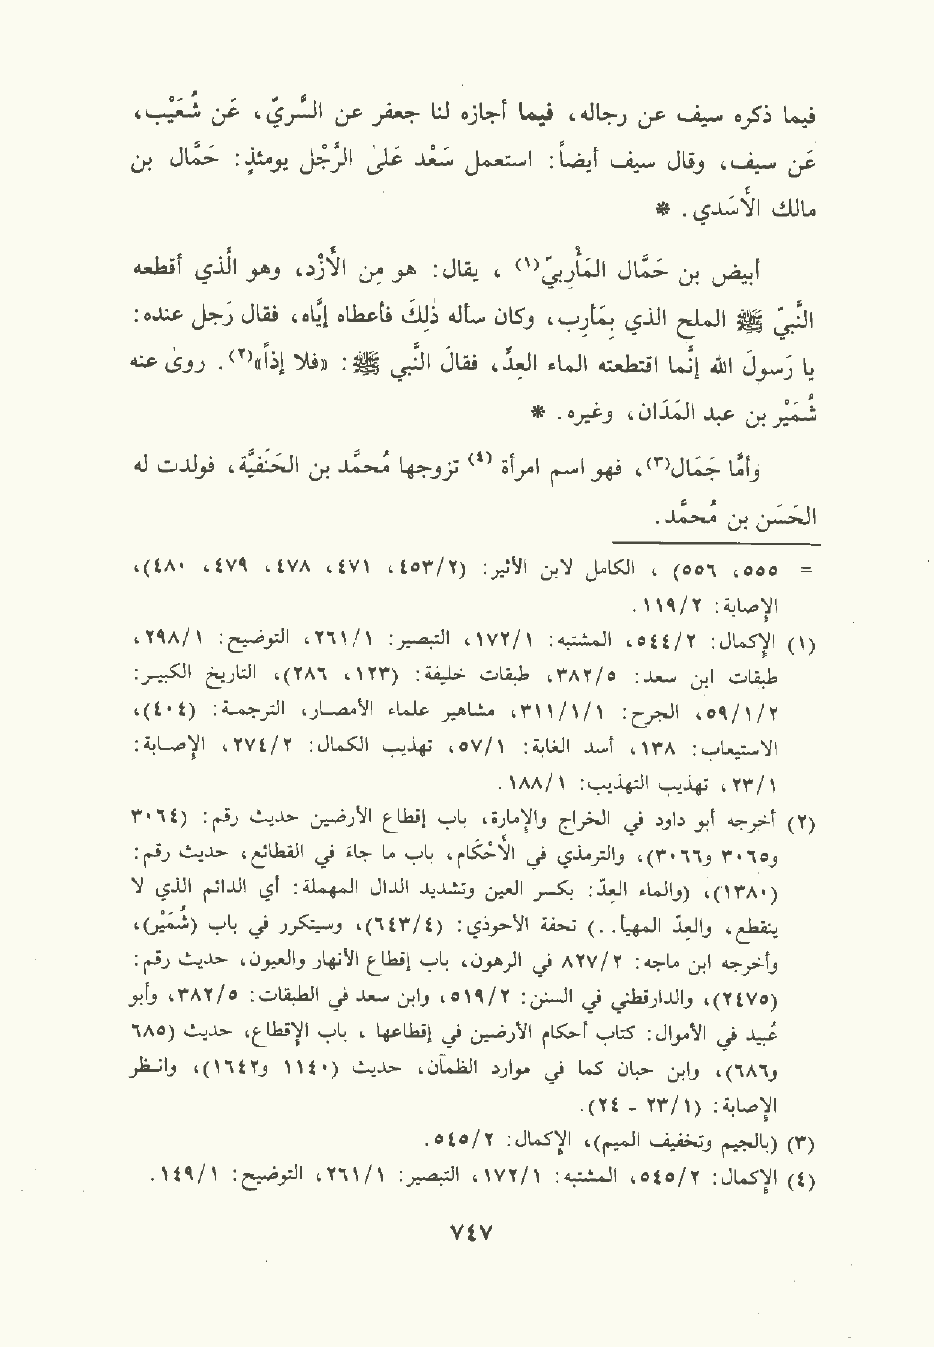 فيما ذكره سيف عن رجاله، فيما أجازه لنا جعفر عن السَّرِيّ، عن شُعَيْب،
عن سيف، وقال سيف أيضاً: استعمل سَعْد عَلى الرَّجْل يومئذٍ: حَمَّال بن
مالك الأسَدي. *
أبيض بن حَمَّال المَأْرِبيّ(١)، يقال: هو مِن الأَزْد، وهو الَّذي أقطعه
النَّبيّ ﷺ المِلح الذي بِمَأرِب، وكان سأله ذٰلِكَ فأعطاه إيّاه، فقال رَجل عنده:
يا رَسولَ الله إنَّما اقتطعته الماء العِدّ، فقالَ النَّبي ﷺ: «فلا إذاً»(٢). وروىٰ عنه
شُمَيْر بن عبد المَدَان، وغيره. *
وأمّا جَمَال(٣)، فهو اسم امرأة(٤) تزوجها مُحمَّد بن الحَنَفيَّة، فولدت له
الحَسَن بن مُحمَّد.
= ٥٥٥، ٥٥٦) ، الكامل لابن الأثير: (٤٥٣/٢، ٤٧١، ٤٧٨، ٤٧٩، ٤٨٠)،
الإصابة: ١١٩/٢.
(١) الإكمال: ٥٤٤/٢، المشتبه: ١٧٢/١، التبصير: ٢٦١/١، التوضيح: ٢٩٨/١،
طبقات ابن سعد: ٣٨٢/٥، طبقات خليفة: (١٢٣، ٢٨٦)، التاريخ الكبير:
٥٩/١/٢، الجرح: ٣١١/١/١، مشاهير علماء الأمصار، الترجمة: (٤٠٤)،
الاستيعاب: ١٣٨، أسد الغابة: ٥٧/١، تهذيب الكمال: ٢٧٤/٢، الإصابة:
٢٣/١، تهذيب التهذيب: ١٨٨/١.
(٢) أخرجه أبو داود في الخراج والإمارة، باب إقطاع الأرضين حديث رقم: (٣٠٦٤
و٣٠٦٥ و٣٠٦٦)، والترمذي في الأحْكام، باب ما جاء في القطائع، حديث رقم:
(١٣٨٠)، (والماء العِدّ: بكسر العين وتشديد الدال المهملة: أي الدائم الذي لا
ينقطع، والعِدّ المهيأ..) تحفة الأحوذي: (٦٤٣/٤)، وسيتكرر في باب (شُمَيْر)،
وأخرجه ابن ماجه: ٨٢٧/٢ في الرهون، باب إقطاع الأنهار والعيون، حديث رقم:
(٢٤٧٥)، والدارقطني في السنن: ٥١٩/٢، وابن سعد في الطبقات: ٣٨٢/٥، وأبو
عُبيد في الأموال: كتاب أحكام الأرضين في إقطاعها ، باب الإقطاع، حديث (٦٨٥
و٦٨٦)، وابن حبان كما في موارد الظمآن، حديث (١١٤٠ و١٦٤٢)، وانظر
الإصابة: (٢٣/١ - ٢٤).
(٣) (بالجيم وتخفيف الميم)، الإكمال: ٥٤٥/٢.
(٤) الإكمال: ٥٤٥/٢، المشتبه: ١٧٢/١، التبصير: ٢٦١/١، التوضيح: ١٤٩/١.
٧٤٧